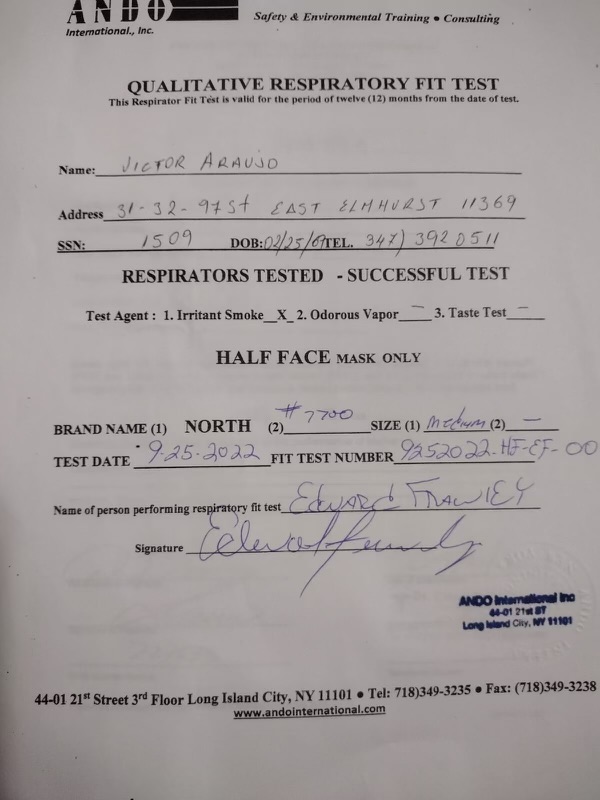 ANDO
International., Inc.
Safety & Environmental Training • Consulting
QUALITATIVE RESPIRATORY FIT TEST
This Respirator Fit Test is valid for the period of twelve (12) months from the date of test.
Name: VICTOR ARAUJO
Address 31-32-97St EAST ELMHURST 11369
SSN: 1509 DOB: 02/25/69 TEL. 347) 392 0511
RESPIRATORS TESTED - SUCCESSFUL TEST
Test Agent : 1. Irritant Smoke__X_ 2. Odorous Vapor — 3. Taste Test —
HALF FACE MASK ONLY
BRAND NAME (1) NORTH (2) #7700 SIZE (1) Medium (2) —
TEST DATE 9-25-2022 FIT TEST NUMBER 9252022-HF-EF-00
Name of person performing respiratory fit test EDWARD FRAWLEY
Signature
ANDO International Inc
44-01 21st ST
Long Island City, NY 11101
44-01 21st Street 3rd Floor Long Island City, NY 11101 • Tel: 718)349-3235 • Fax: (718)349-3238
www.andointernational.com